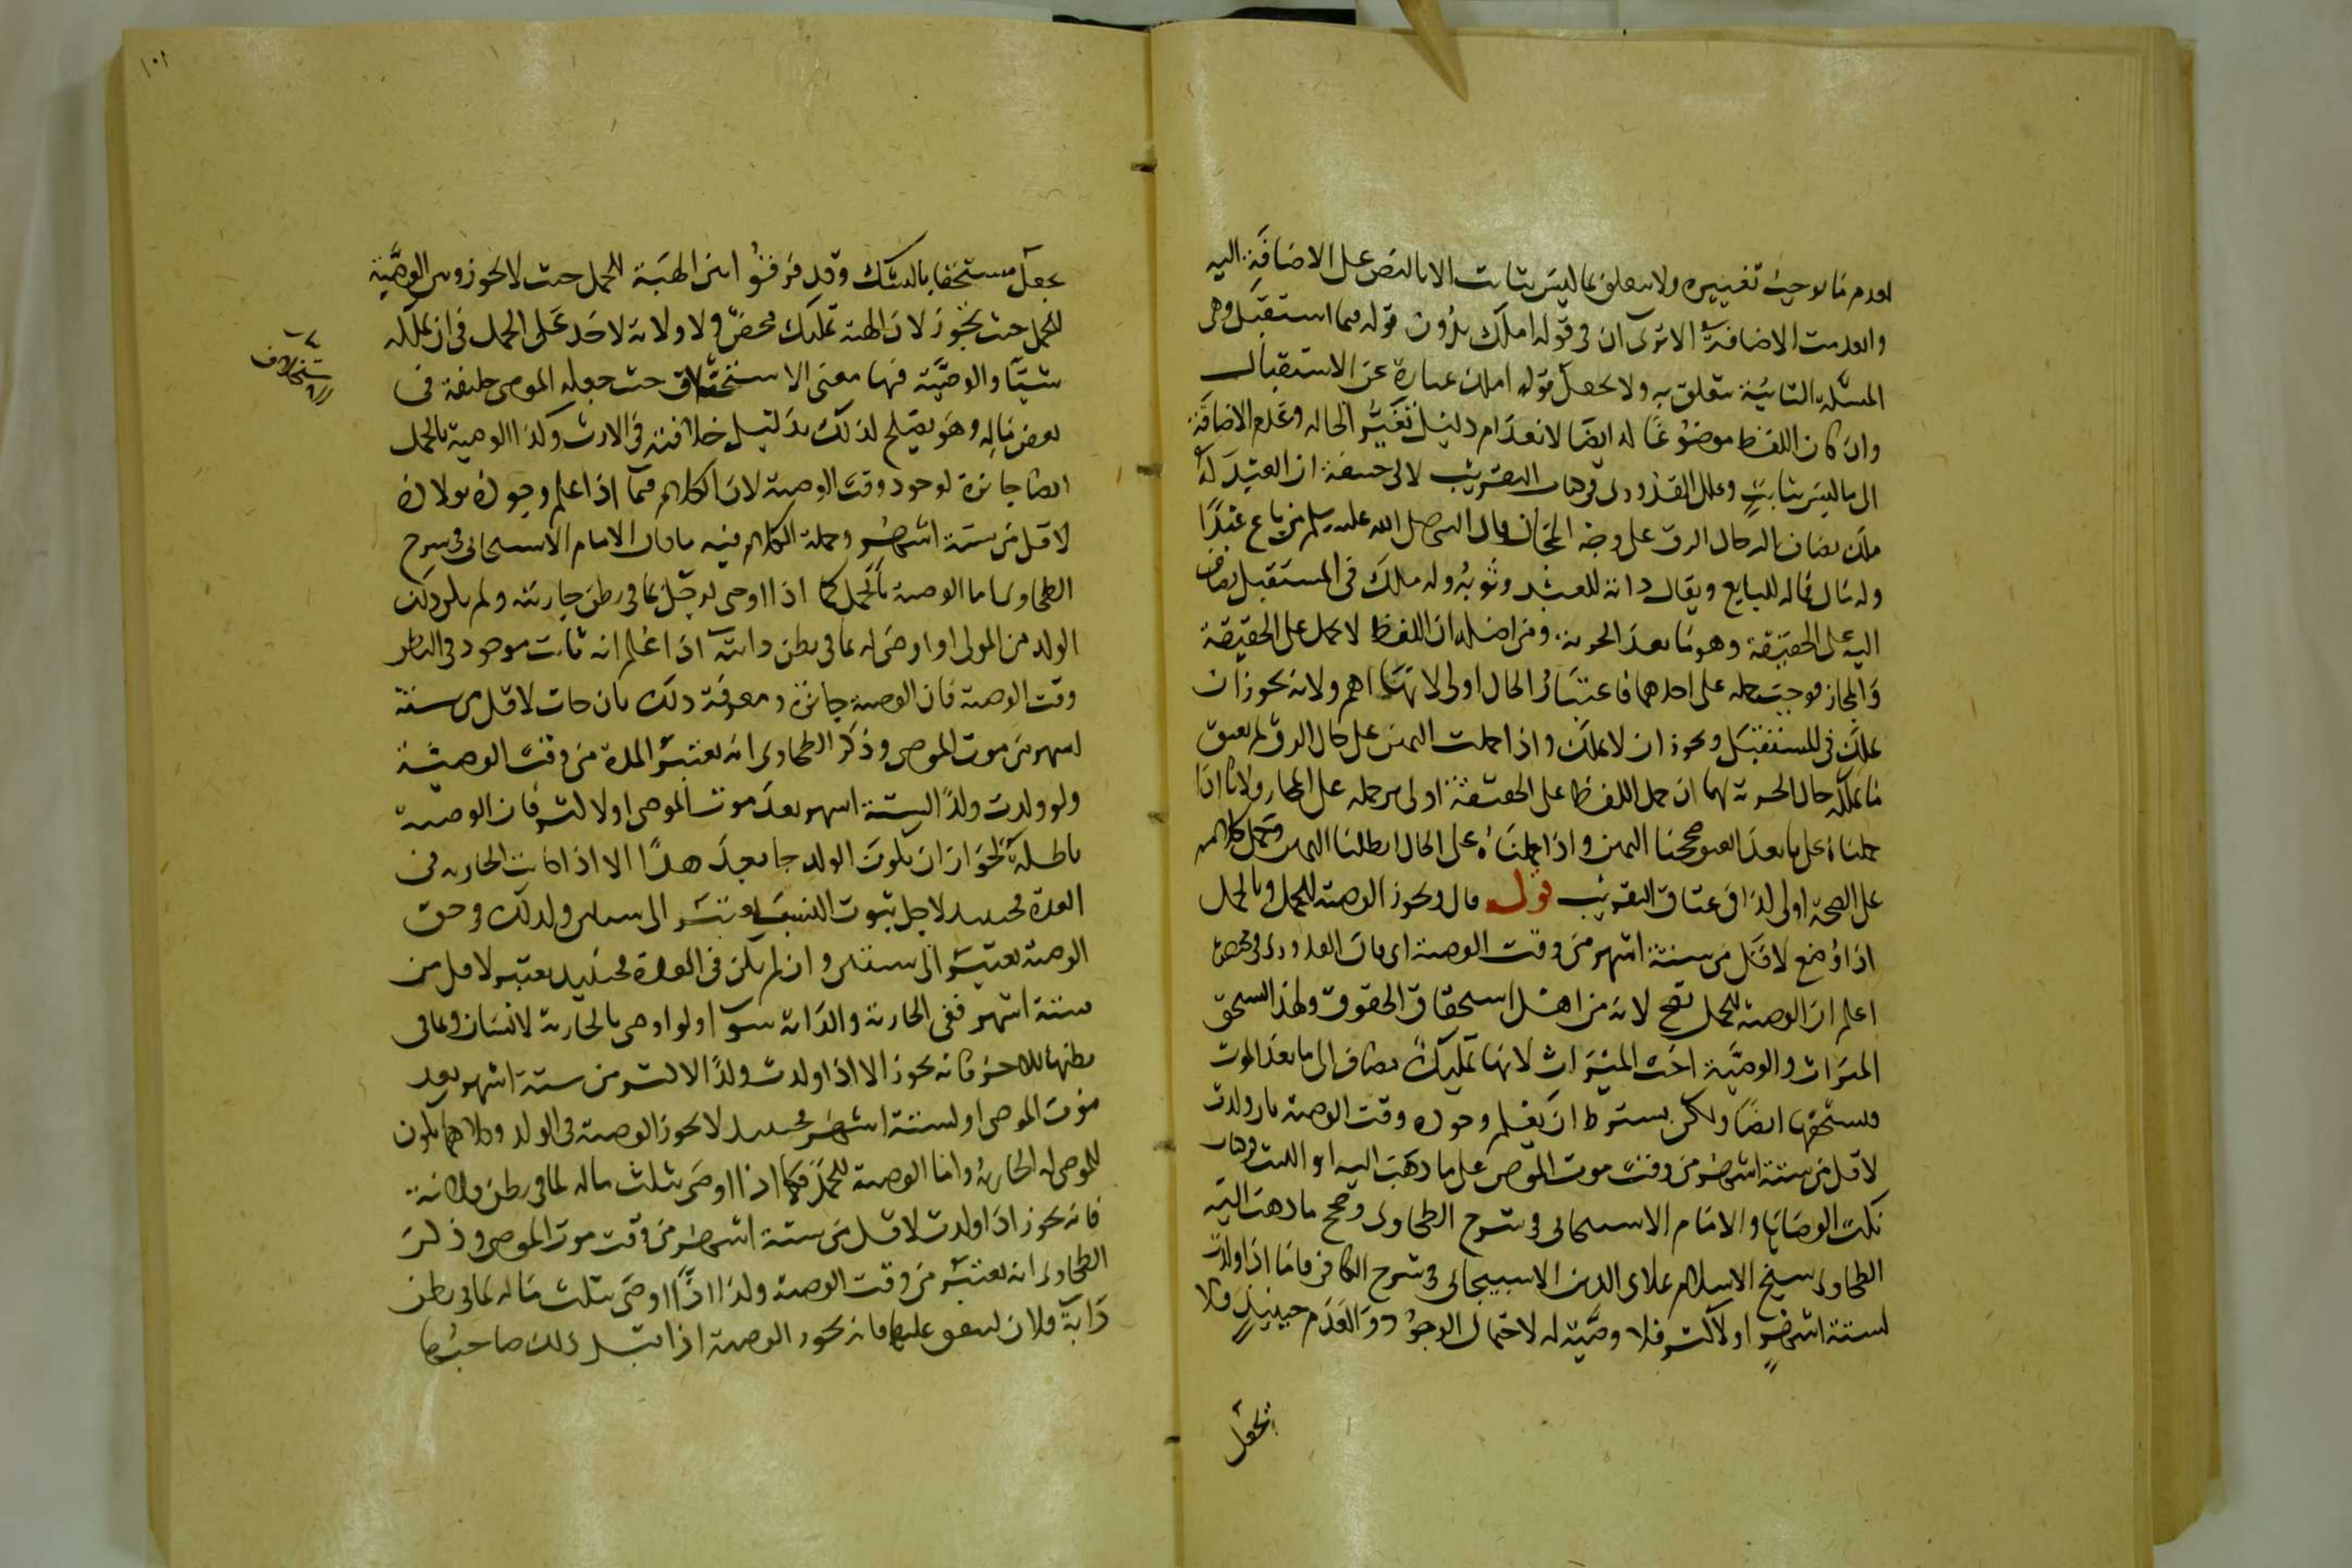 لعدم ما يوجب تغييره ولا يتعلق بما ليس بثابت الا بالنص على الاضافة اليه
وانعدمت الاضافة الا ترى ان في قوله املك بدون قوله فيما استقبل وهي
المسئلة الثانية يتعلق به ولا يجعل قوله املك عبارة عن الاستقبال
وان كان اللفظ موضوعا له ايضا لانعدام دليل تغير الحال وعدم الاضافة
الى ما ليس بثابت وعلل القدوري في التقريب لابي حنيفة ان العبد له
ملك يضاف اليه حال الرق على وجه المجاز قال النبي صلى الله عليه وسلم من باع عبدا
وله مال فماله للبايع ويقال دابة للعبد وثوبه وله ملك في المستقبل يضاف
اليه على الحقيقة وهو ما بعد الحرية ومن اصله ان اللفظ لا يحمل على الحقيقة
والمجاز فوجب حمله على احدهما فاعتبار الحال اولى لانها اهم ولانه يجوز ان
يملك في المستقبل ويجوز ان لا يملك واذا حملت اليمين على حال الرق لم يعتق
ما يملكه حال الحرية لهما ان حمل اللفظ على الحقيقة اولى من حمله على المجاز ولانا اذا
حملناه على ما بعد العتق صححنا اليمين واذا حملناه على الحال ابطلنا اليمين وحمل كلامه
على الصحة اولى كذا في عتاق التقريب قوله قال ويجوز الوصية للحمل وبالحمل
اذا وضع لاقل من ستة اشهر من وقت الوصية اي قال القدوري في مختصره
اعلم ان الوصية للحمل تصح لانه من اهل استحقاق الحقوق ولهذا يستحق
الميراث والوصية اخت الميراث لانها تمليك مضاف الى ما بعد الموت
فيستحقها ايضا ولكن يشترط ان يعلم وجوده وقت الوصية بان ولدت
لاقل من ستة اشهر من وقت موت الموصي على ما ذهب اليه ابو الليث في كتاب
نكت الوصايا والامام الاسبيجابي في شرح الطحاوي وصحح ما ذهب اليه
الطحاوي شيخ الاسلام علاء الدين الاسبيجابي في شرح الكافي فاما اذا ولدت
لستة اشهر او لاكثر فلا وصية له لاحتمال الوجود والعدم حينئذ فلا
يجعل
١٠١
يجعل مستحقا بالشك وقد فرقوا بين الهبة للحمل حيث لا يجوز وبين الوصية
للحمل حيث يجوز لان الهبة تمليك محض ولا ولاية لاحد على الحمل في ان يملكه
شيئا والوصية فيها معنى الاستخلاف حيث جعله الموصي خليفة في
بعض ماله وهو يصلح لذلك بدليل خلافته في الارث وكذا الوصية بالحمل
ايضا جائزة لوجوده وقت الوصية لان الكلام فيما اذا علم وجوده بولادة
لاقل من ستة اشهر وجملة الكلام فيه ما قال الامام الاسبيجابي في شرح
الطحاوي اما الوصية بالحمل كما اذا اوصى لرجل بما في بطن جاريته ولم يكن ذلك
الولد من المولى او اوصى له بما في بطن دابته اذا علم انه ثابت موجود في البطن
وقت الوصية فان الوصية جائزة ومعرفة ذلك بان جات لاقل من ستة
اشهر من موت الموصي وذكر الطحاوي انه يعتبر المدة من وقت الوصية
ولو ولدت ولدا لستة اشهر بعد موت الموصي او لاكثر فان الوصية
باطلة لجواز ان يكون الولد جا بعد هذا الا اذا كانت الجارية في
العدة فحينئذ لاجل ثبوت النسب يعتبر الى سنتين وكذلك في حق
الوصية يعتبر الى سنتين وان لم يكن في العدة فحينئذ يعتبر لاقل من
ستة اشهر ففي الجارية والدابة سوا ولو اوصى بالجارية لانسان وبما في
بطنها للاخر فانه يجوز الا اذا ولدت ولدا لاكثر من ستة اشهر بعد
موت الموصي او لستة اشهر فحينئذ لا يجوز الوصية في الولد وكلاهما يكون
للموصى له الجارية واما الوصية للحمل فكما اذا اوصى بثلث ماله لما في بطن فلانة
فانه يجوز اذا ولدت لاقل من ستة اشهر من وقت موت الموصي وذكر
الطحاوي انه يعتبر من وقت الوصية وكذا اذا اوصى بثلث ماله لما في بطن
دابة فلان لينفق عليها فانه يجوز الوصية اذا قبل ذلك صاحبها
استخلاف